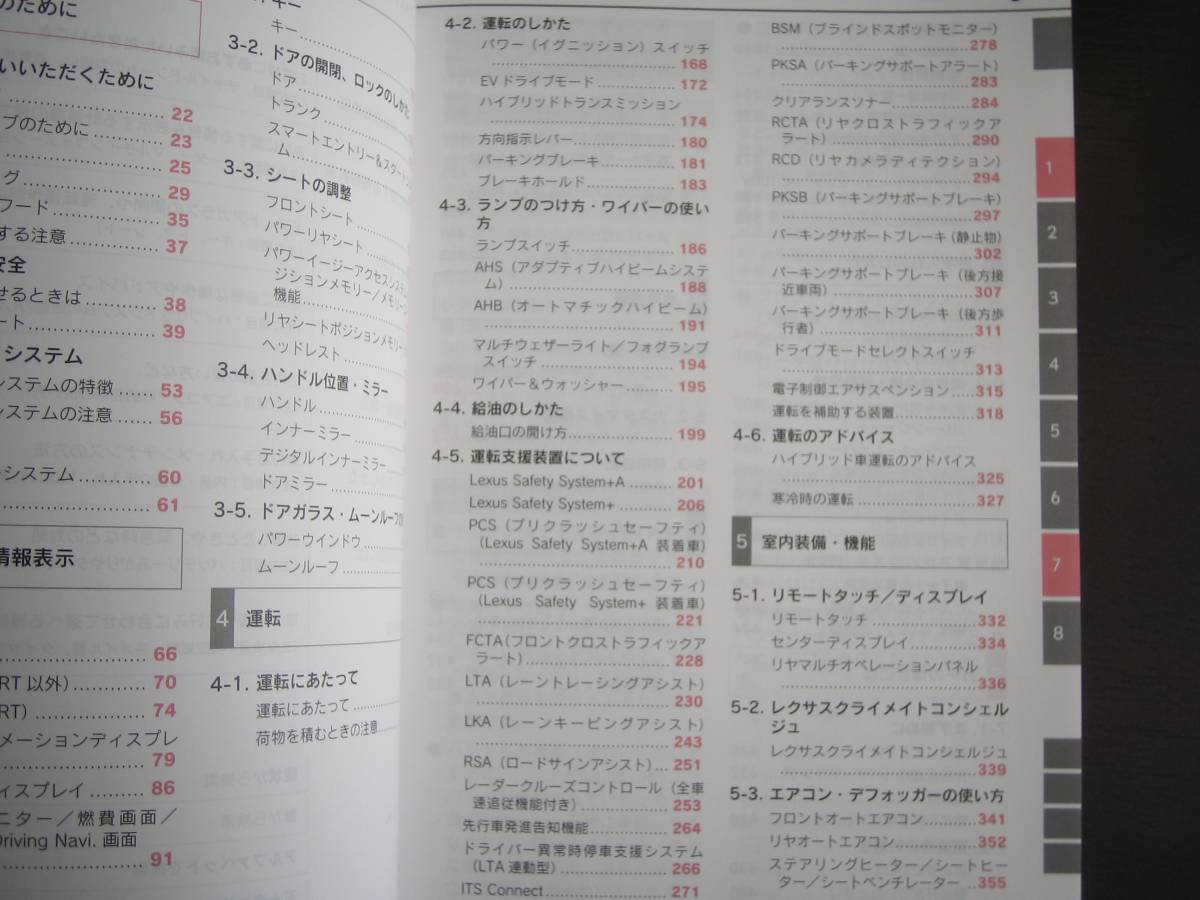 のために
いいただくために
22
ブのために 23
25
グ 29
フード 35
する注意 37
安全
せるときは 38
ート 39
システム
システムの特徴 53
システムの注意 56
システム 60
61
情報表示
66
RT 以外) 70
RT) 74
メーションディスプレ
79
ィスプレイ 86
ニター／燃費画面／
Driving Navi. 画面
91
キー
キー
3-2. ドアの開閉、ロックのしかた
ドア
トランク
スマートエントリー＆スター
ム
3-3. シートの調整
フロントシート
パワーリヤシート
パワーイージーアクセスシステ
ジションメモリー／メモリー
機能
リヤシートポジションメモリー
ヘッドレスト
3-4. ハンドル位置・ミラー
ハンドル
インナーミラー
デジタルインナーミラー
ドアミラー
3-5. ドアガラス・ムーンルーフの
パワーウインドウ
ムーンルーフ
4 運転
4-1. 運転にあたって
運転にあたって
荷物を積むときの注意
4-2. 運転のしかた
パワー（イグニッション）スイッチ
168
EVドライブモード 172
ハイブリッドトランスミッション
174
方向指示レバー 180
パーキングブレーキ 181
ブレーキホールド 183
4-3. ランプのつけ方・ワイパーの使い
方
ランプスイッチ 186
AHS（アダプティブハイビームシステ
ム） 188
AHB（オートマチックハイビーム）
191
マルチウェザーライト／フォグランプ
スイッチ 194
ワイパー＆ウォッシャー 195
4-4. 給油のしかた
給油口の開け方 199
4-5. 運転支援装置について
Lexus Safety System+A 201
Lexus Safety System+ 206
PCS（プリクラッシュセーフティ）
（Lexus Safety System+A 装着車）
210
PCS（プリクラッシュセーフティ）
（Lexus Safety System+ 装着車）
221
FCTA（フロントクロストラフィックア
ラート） 228
LTA（レーントレーシングアシスト）
230
LKA（レーンキーピングアシスト）
243
RSA（ロードサインアシスト） 251
レーダークルーズコントロール（全車
速追従機能付き） 253
先行車発進告知機能 264
ドライバー異常時停車支援システム
（LTA 連動型） 266
ITS Connect 271
BSM（ブラインドスポットモニター）
278
PKSA（パーキングサポートアラート）
283
クリアランスソナー 284
RCTA（リヤクロストラフィックア
ラート） 290
RCD（リヤカメラディテクション）
294
PKSB（パーキングサポートブレーキ）
297
パーキングサポートブレーキ（静止物）
302
パーキングサポートブレーキ（後方接
近車両） 307
パーキングサポートブレーキ（後方歩
行者） 311
ドライブモードセレクトスイッチ
313
電子制御エアサスペンション 315
運転を補助する装置 318
4-6. 運転のアドバイス
ハイブリッド車運転のアドバイス
325
寒冷時の運転 327
5 室内装備・機能
5-1. リモートタッチ／ディスプレイ
リモートタッチ 332
センターディスプレイ 334
リヤマルチオペレーションパネル
336
5-2. レクサスクライメイトコンシェル
ジュ
レクサスクライメイトコンシェルジュ
339
5-3. エアコン・デフォッガーの使い方
フロントオートエアコン 341
リヤオートエアコン 352
ステアリングヒーター／シートヒー
ター／シートベンチレーター 355
1
2
3
4
5
6
7
8